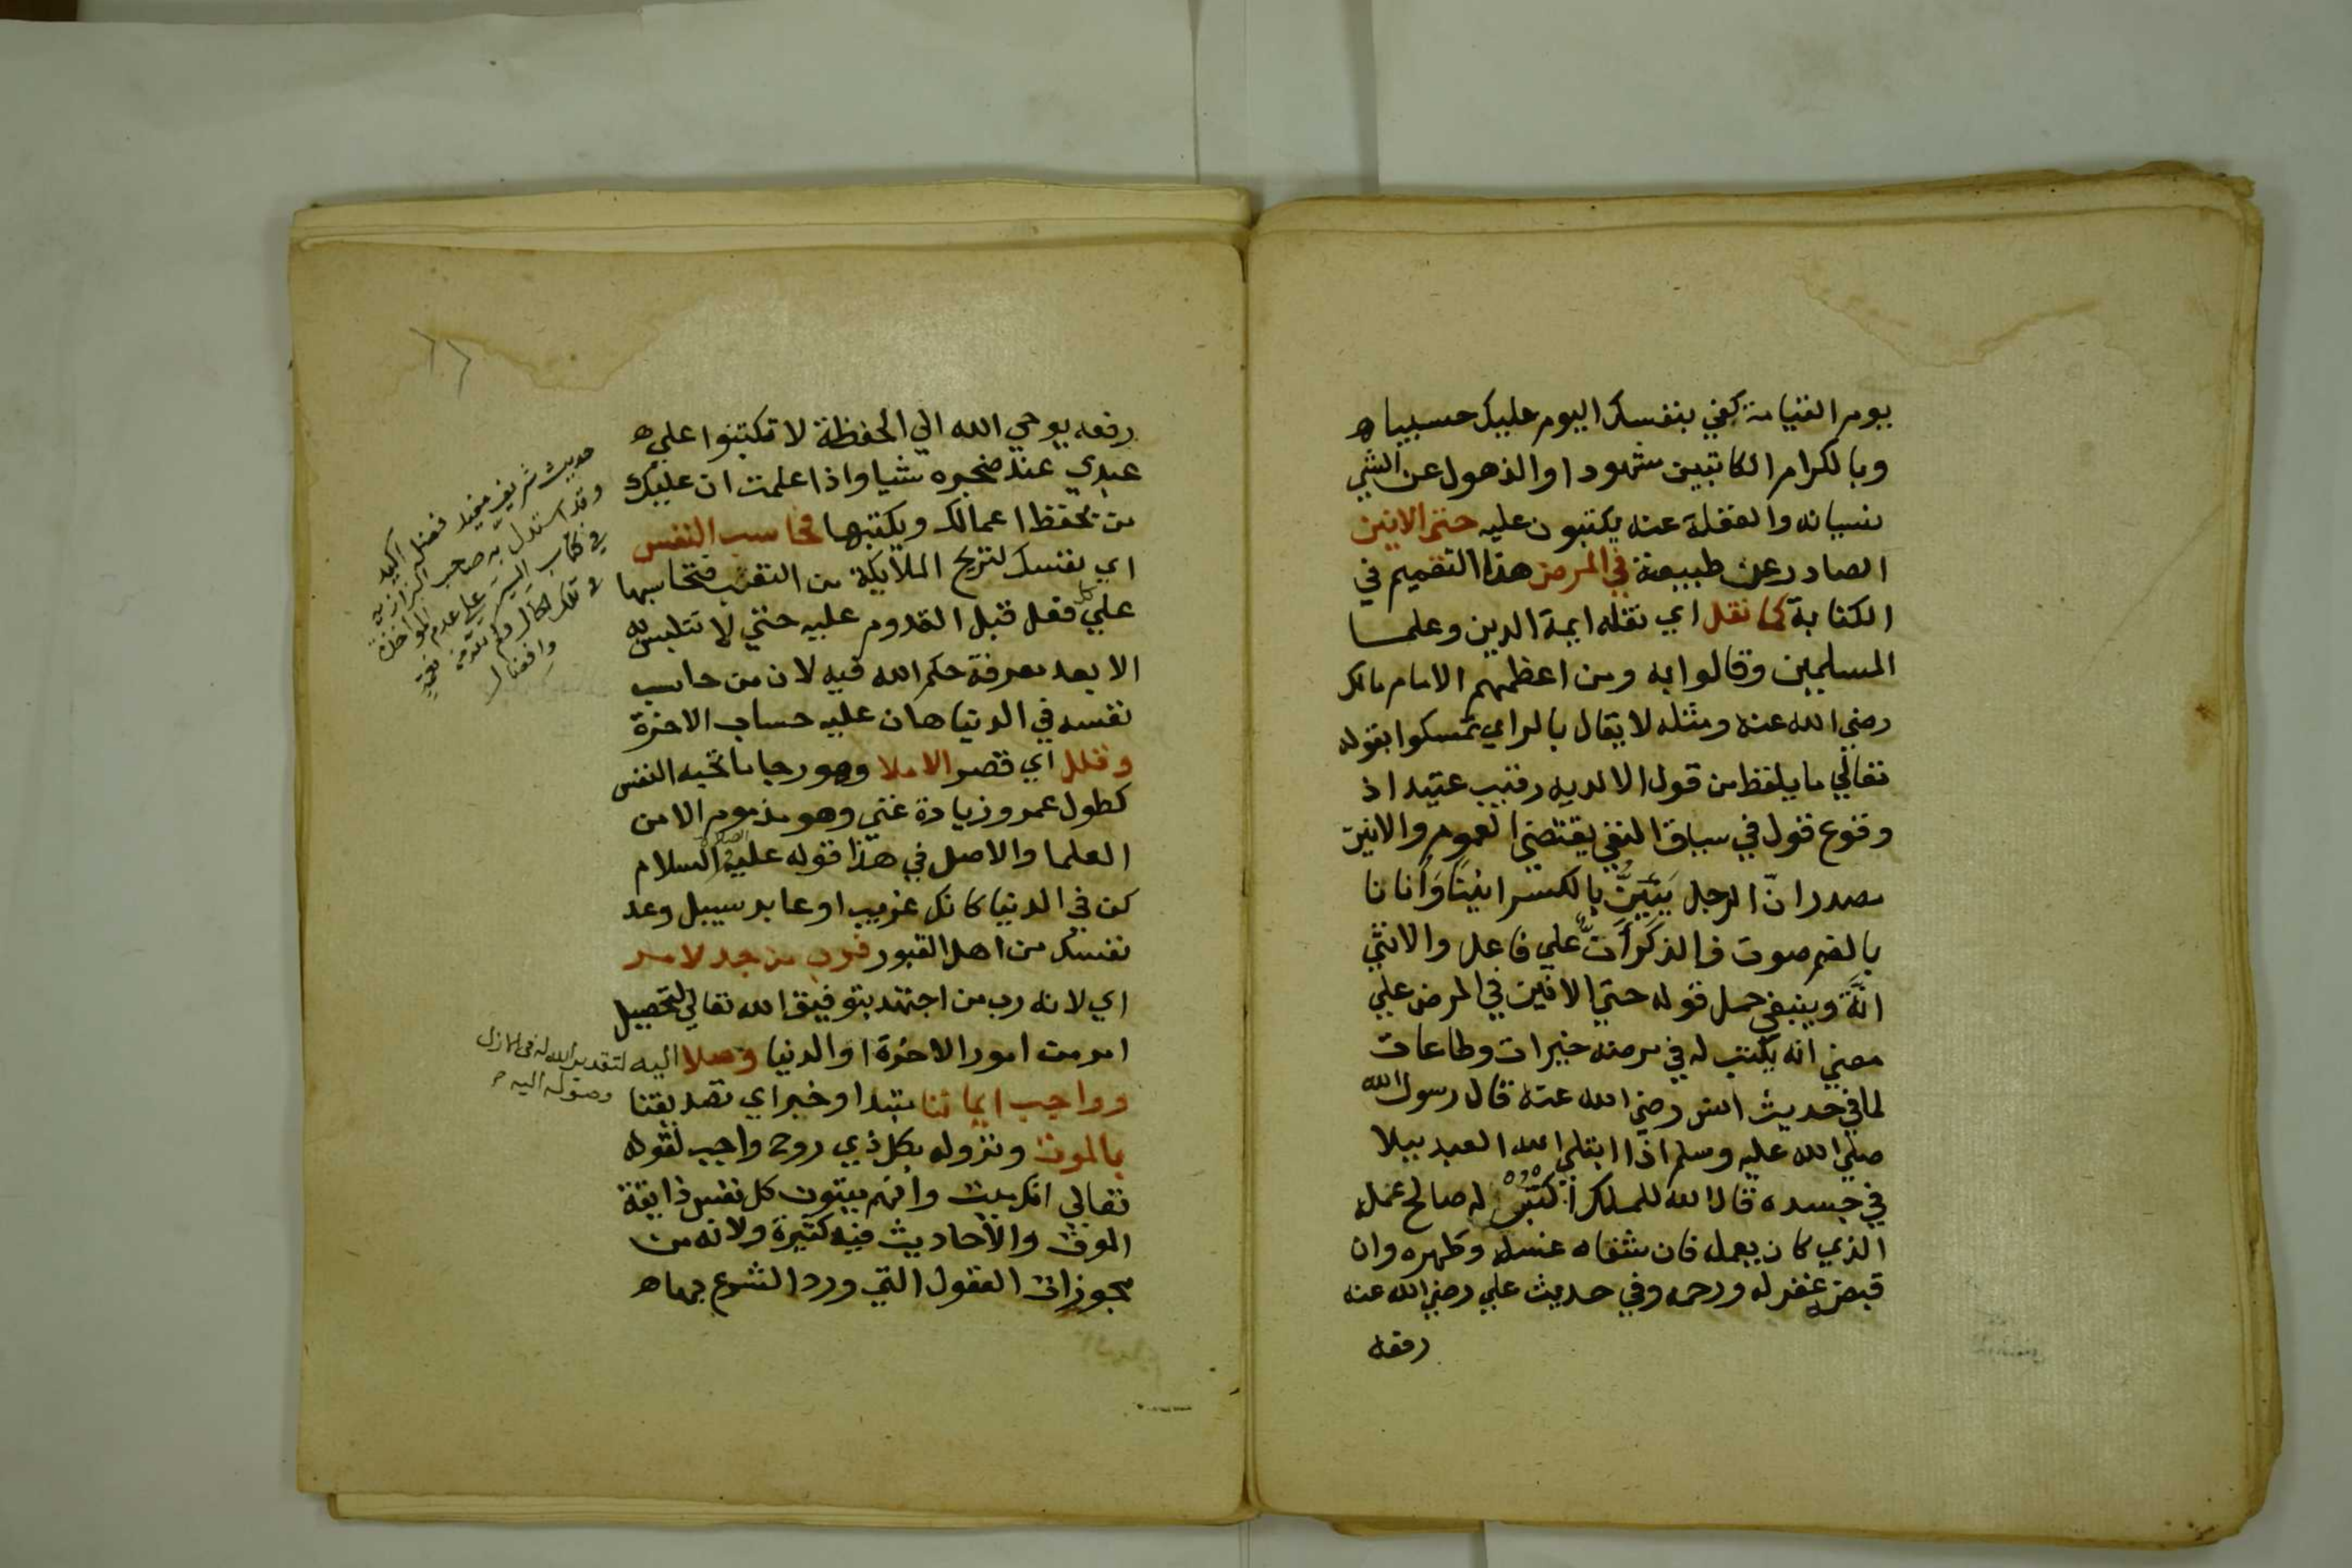 يوم القيامة كفي بنفسك اليوم عليك حسيبا ه
وبالكرام الكاتبين شهودا والذهول عن الشي
نسيانه والغفلة عنه يكتبون عليه حتي الانين
الصادر عن طبيعة في المرض هذا التعميم في
الكتابة كما نقل اي نقله ايمة الدين وعلما
المسلمين وقالوا به ومن اعظمهم الامام مالك
رضي الله عنه ومثله لا يقال بالراي تمسكوا بقوله
تعالي ما يلفظ من قول الا لديه رقيب عتيد اذ
وقوع قول في سياق النفي يقتضي العموم والانين
مصدر انّ الرجل يَئِنُّ بالكسر انينًا وَأُنانا
بالضم صوت فالذكر آنٌّ علي فاعل والانثي
انَّة وينبغي حمل قوله حتي الانين في المرض علي
معني انه يكتب له في مرضه خيرات وطاعات
لما في حديث انس رضي الله عنه قال رسول الله
صلي الله عليه وسلم اذا ابتلي الله العبد ببلا
في جسده قال الله للملك اكتبوا له صالح عمله
الذي كان يعمل فان شفاه غسله وطهره وان
قبضه غفر له ورحمه وفي حديث علي رضي الله عنه
رفعه
رفعه يوحي الله الي الحفظة لا تكتبوا علي ه
عبدي عند ضجره شيا واذا علمت ان عليك
من يحفظ اعمالك ويكتبها فحاسب النفس
اي نفسك لتريح الملايكة من التعب فتحاسبها
علي كل فعل قبل القدوم عليه حتي لا تتلبس به
الا بعد معرفة حكم الله فيه لان من حاسب
نفسه في الدنيا هان عليه حساب الاخرة
وقلل اي قصر الاملا وهو رجا ما تحبه النفس
كطول عمر وزيادة غني وهو مذموم الا من
العلما والاصل في هذا قوله عليه الصلاة والسلام
كن في الدنيا كانك غريب او عابر سبيل وعد
نفسك من اهل القبور فرب من جد لامر
اي لانه رب من اجتهد بتوفيق الله تعالي لتحصيل
امر من امور الاخرة او الدنيا وصلا اليه لتقدير الله له في الازل
وصوله اليه
وواجب ايماننا مبتدا وخبر اي تصديقنا
بالموت ونزوله بكل ذي روح واجب لقوله
تعالي انك ميت وانهم ميتون كل نفس ذايقة
الموت والاحاديث فيه كثيرة ولانه من
مجوزات العقول التي ورد الشرع بها ه
حديث شريف مفيد فضل اكيد
وقد استدل به صاحب البزازية
في كتاب السير علي عدم المؤاخذة